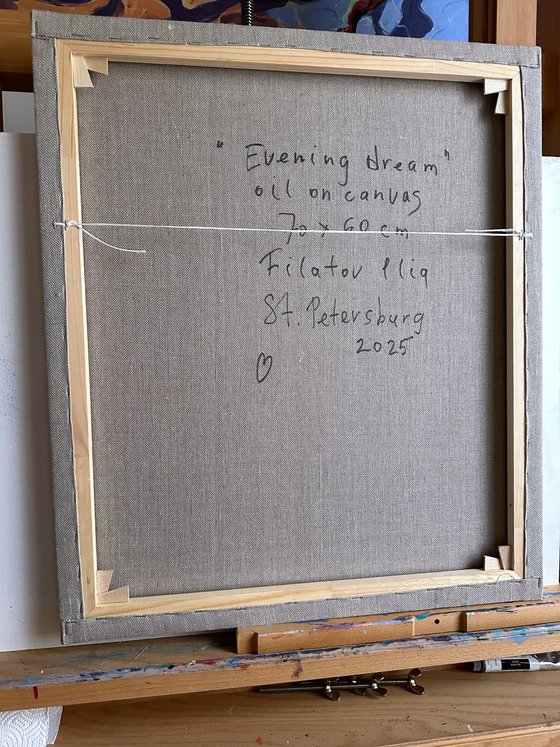 "Evening dream"
oil on canvas
70 x 60 cm
Filatov Ilia
St. Petersburg
2025